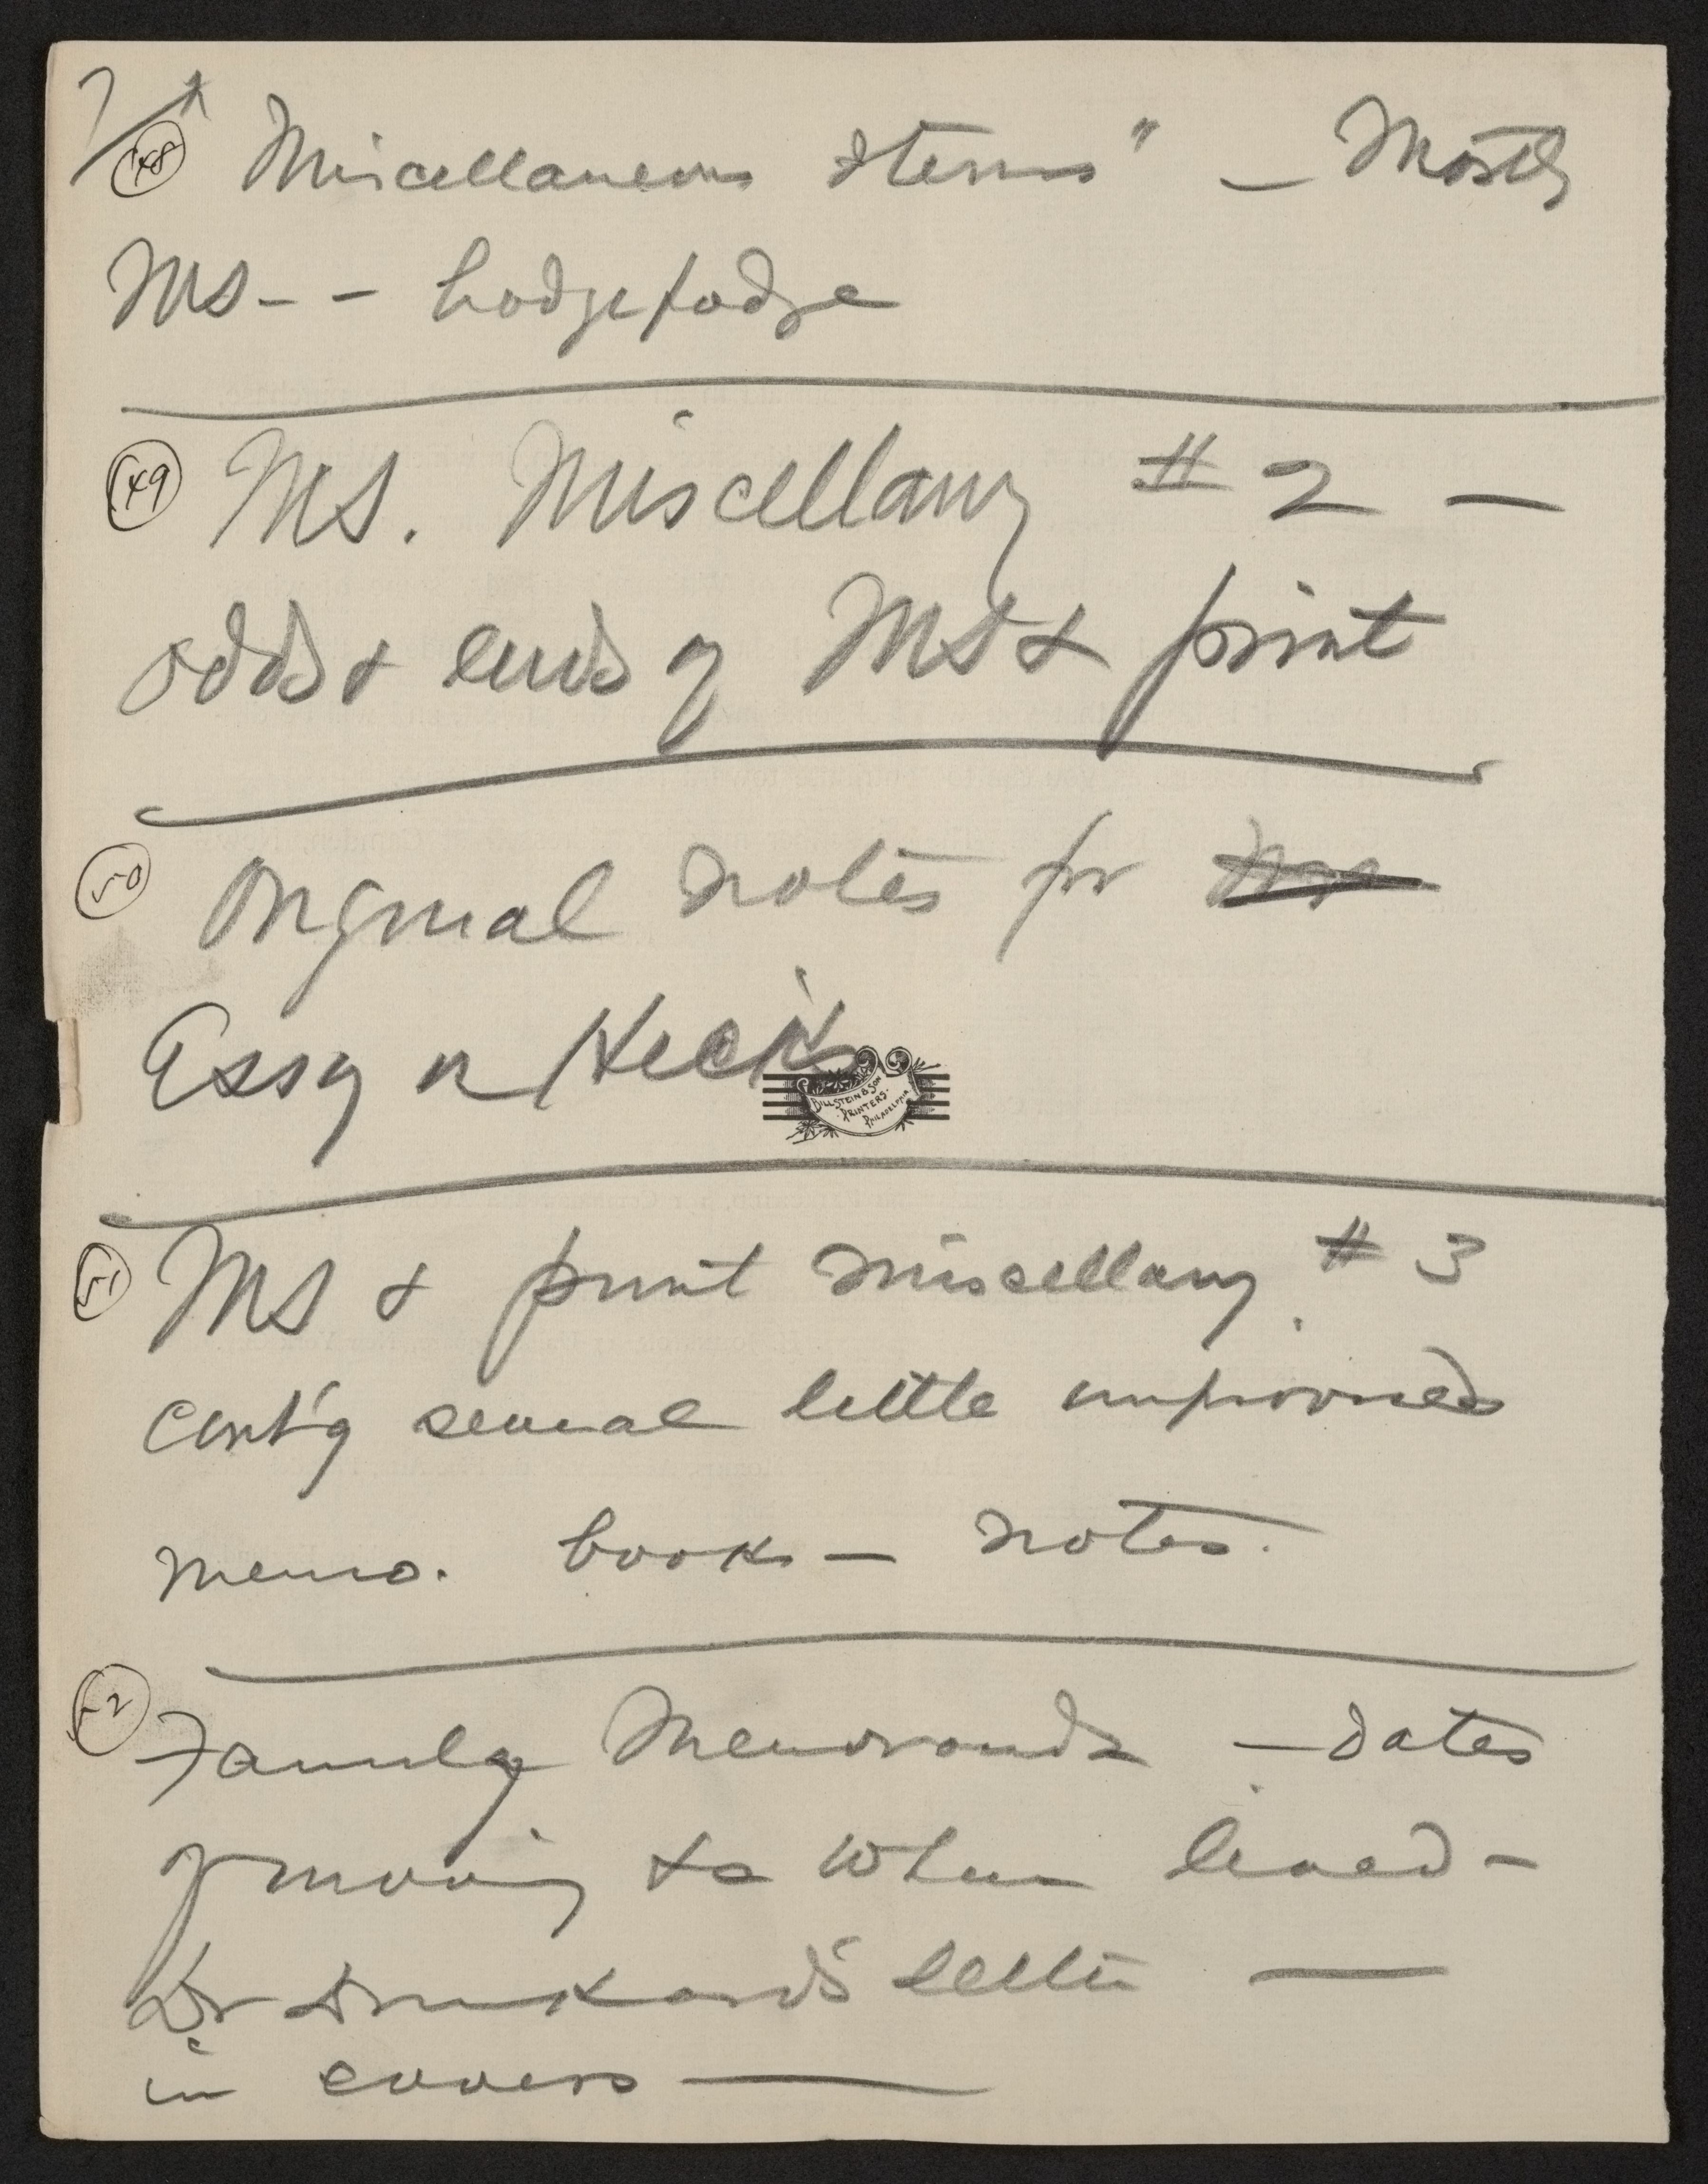 7
48 Miscellaneous Items" — Mostly
MS- - hodgepodge
49 MS. Miscellany # 2 —
odds & ends of MS & print
50 Original notes for
Essay on Hicks
BILLSTEIN & SON
PRINTERS.
PHILADELPHIA
51 MS & print miscellany # 3
cont'g several little improvised
memo. books — notes.
52 Family Memoranda — dates
of moving to when lived -
Dr Drinkard's letter —
in covers —